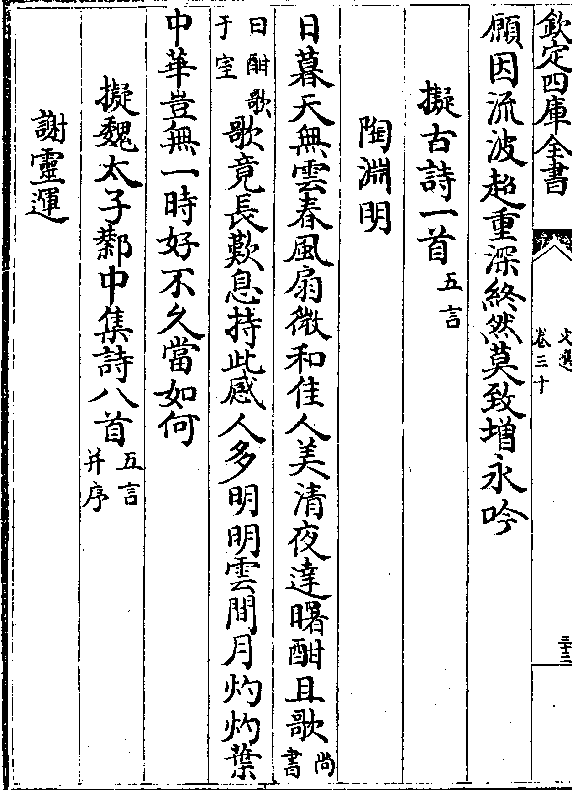 欽定四庫全書
文選
卷三十
願因流波超重深終然莫致增永吟
擬古詩一首五言
陶淵明
日暮天無雲春風扇微和佳人美清夜達曙酣且歌尚書
曰酣歌于室歌竟長歎息持此感人多明明雲間月灼灼葉
中華豈無一時好不久當如何
擬魏太子鄴中集詩八首五言并序
謝靈運